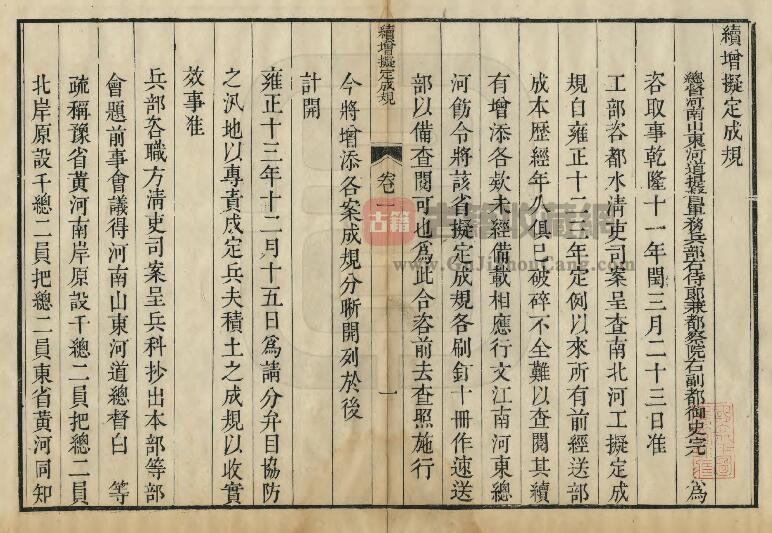 續增擬定成規
總督河南山東河道提督軍務兵部右侍郎兼都察院右副都御史完 為
咨取事乾隆十一年閏三月二十三日准
工部咨都水清吏司案呈查南北河工擬定成
規自雍正十二三年定例以來所有前經送部
成本歷經年久俱已破碎不全難以查閱其續
有增添各欵未經備載相應行文江南河東總
河飭令將該省擬定成規各刷釘十冊作速送
部以備查閱可也為此合咨前去查照施行
今將增添各案成規分晰開列於後
續增擬定成規
卷一
一
計開
雍正十三年十二月十五日為請分弁目協防
之汛地以專責成定兵夫積土之成規以收實
效事准
兵部咨職方清吏司案呈兵科抄出本部等部
會題前事會議得河南山東河道總督白 等
疏稱豫省黃河南岸原設千總二員把總二員
北岸原設千總二員把總二員東省黃河同知
古籍
古籍收藏網
www.GuJiShouCang.com